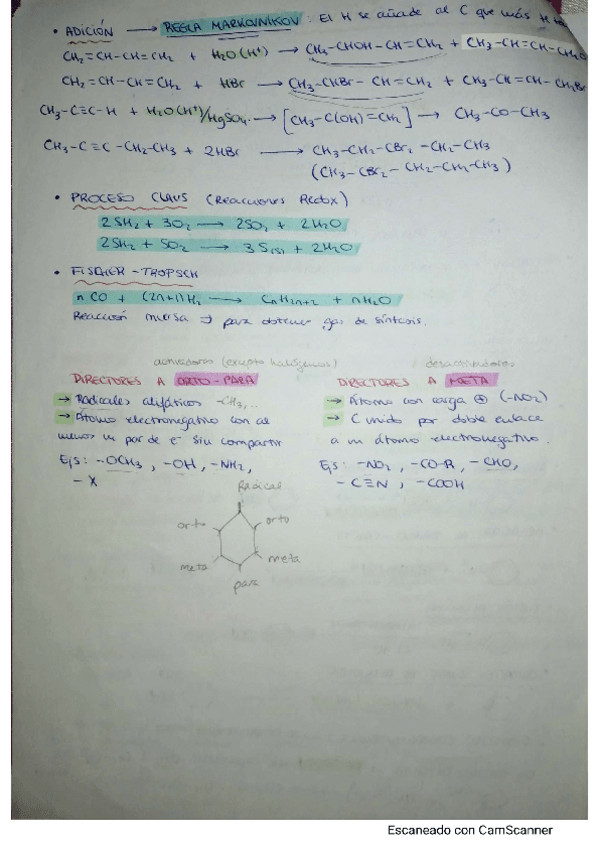 • ADICIÓN → REGLA MARKOVNIKOV : El H se añade al C que más H
CH₂=CH-CH=CH₂ + H₂O(H⁺) → CH₃-CHOH-CH=CH₂ + CH₃-CH=CH-CH₂O
CH₂=CH-CH=CH₂ + HBr → CH₃-CHBr-CH=CH₂ + CH₃-CH=CH-CH₂Br
CH₃-C≡C-H + H₂O(H⁺)/HgSO₄ → [CH₃-C(OH)=CH₂] → CH₃-CO-CH₃
CH₃-C≡C-CH₂-CH₃ + 2HBr → CH₃-CH₂-CBr₂-CH₂-CH₃
(CH₃-CBr₂-CH₂-CH₂-CH₃)
• PROCESO CLAUS (Reacciones Redox)
2SH₂ + 3O₂ → 2SO₂ + 2H₂O
2SH₂ + SO₂ → 3S(s) + 2H₂O
• FISCHER-TROPSCH
nCO + (2n+1)H₂ → CnH2n+2 + nH₂O
Reacción inversa ⇒ para obtener gas de síntesis.
activadores (excepto halógenos)
DIRECTORES A ORTO-PARA
→ Radicales alifáticos -CH₃, ...
→ Átomo electronegativo con al
menos un par de e⁻ sin compartir
Ejs: -OCH₃, -OH, -NH₂,
-X
desactivadores
DIRECTORES A META
→ Átomo con carga ⊕ (-NO₂)
→ C unido por doble enlace
a un átomo electronegativo.
Ejs: -NO₂, -CO-R, -CHO,
-C≡N, -COOH
Radical
orto
orto
meta
meta
para
Escaneado con CamScanner